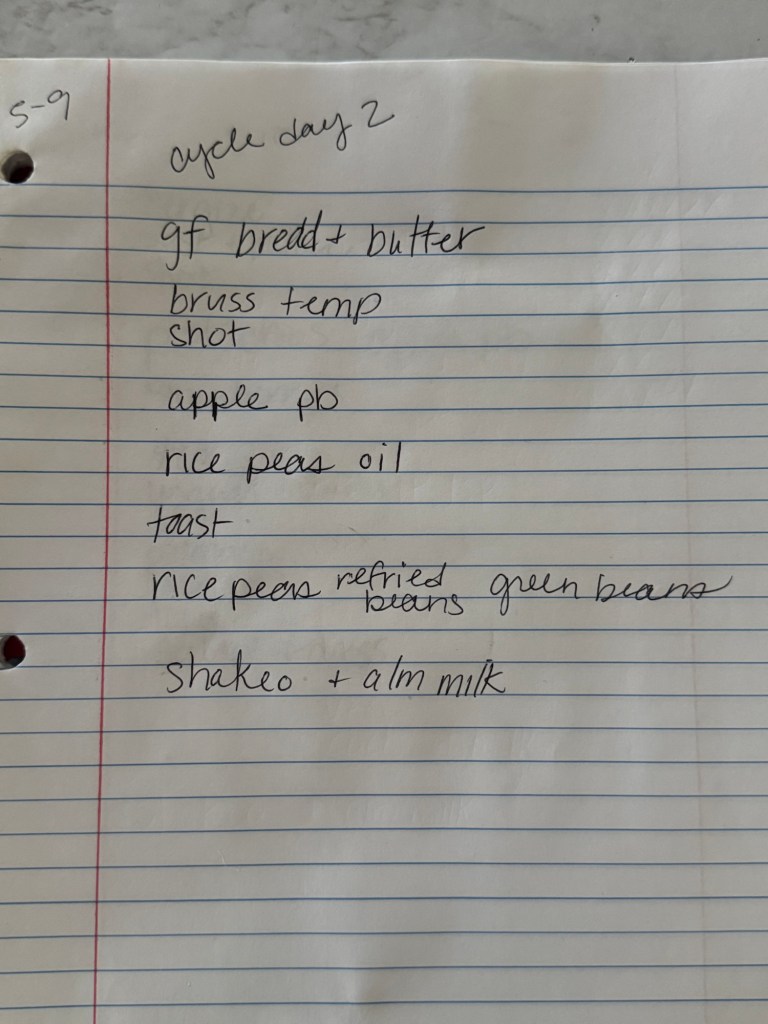 5-9
cycle day 2
gf bredd + butter
bruss temp
shot
apple pb
rice peas oil
toast
rice peas refried beans green beans
shakeo + alm milk